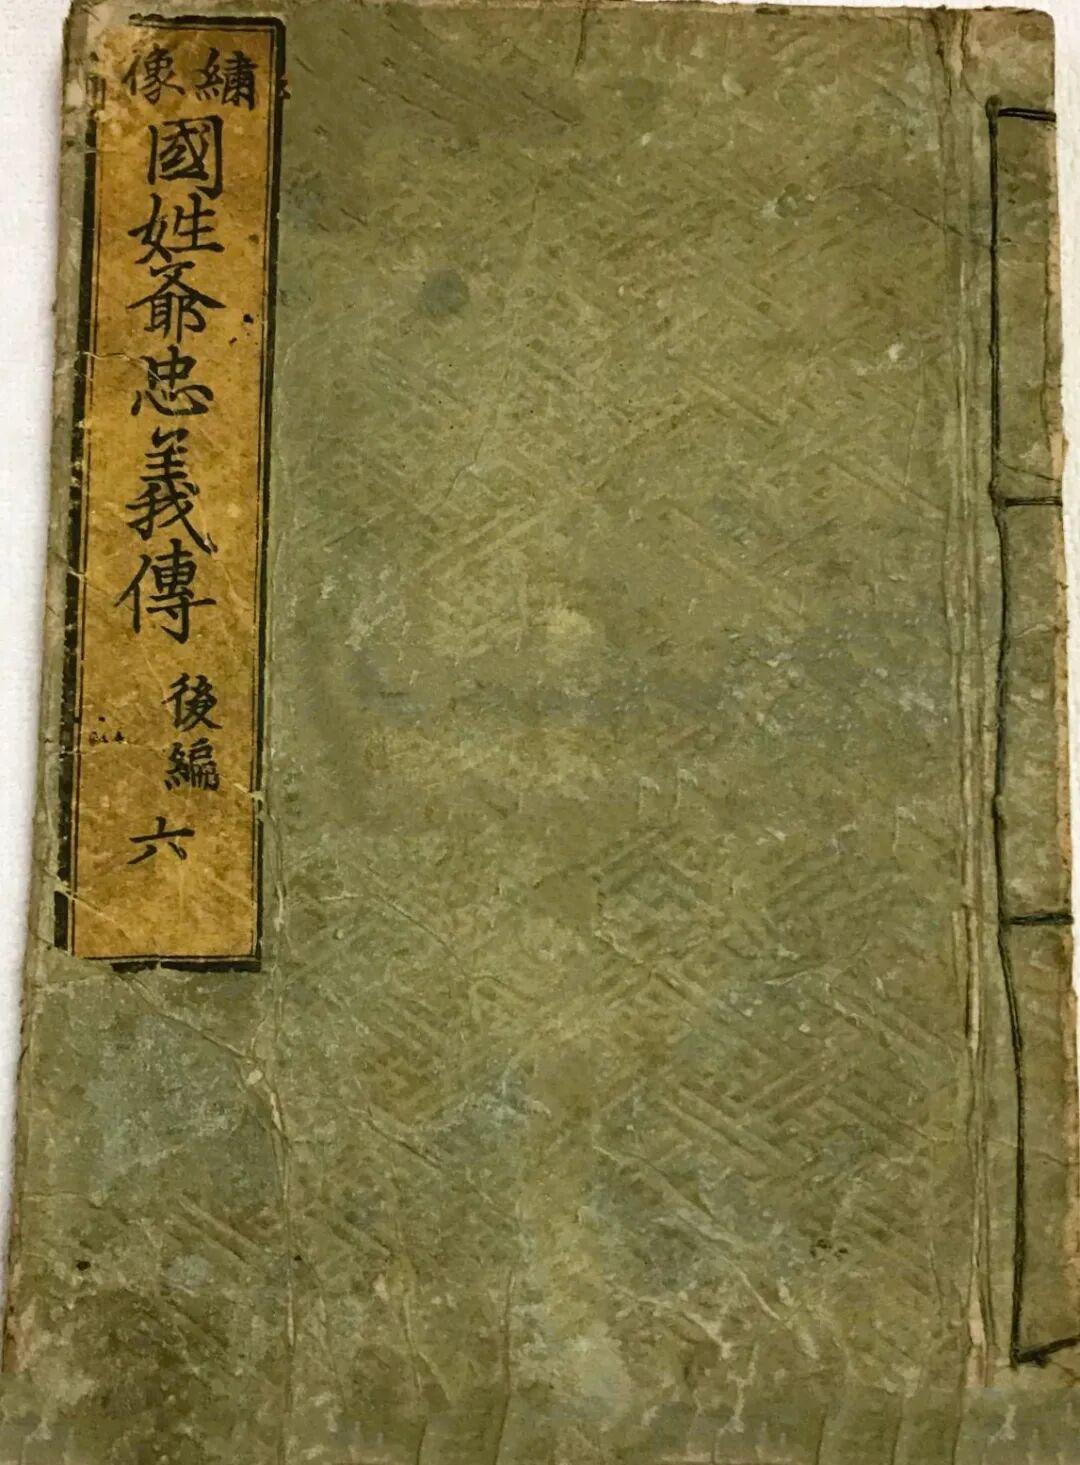 繍像
國姓爺忠義傳
後編
六